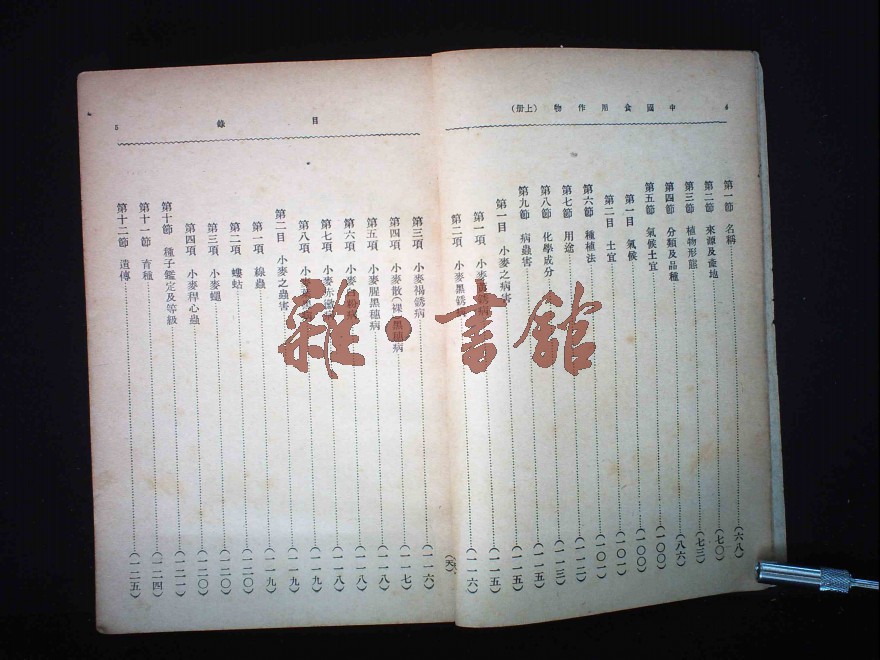 4
中國食用作物(上册)
第一節 名稱(六八)
第二節 來源及產地(七〇)
第三節 植物形態(七三)
第四節 分類及品種(八六)
第五節 氣候土宜(一〇〇)
第一目 氣候(一〇〇)
第二目 土宜(一〇一)
第六節 種植法(一〇一)
第七節 用途(一一二)
第八節 化學成分(一一三)
第九節 病蟲害(一一五)
第一目 小麥之病害(一一五)
第一項 小麥銹病(一一五)
第二項 小麥黑銹病(一一六)
目錄
5
第三項 小麥褐銹病(一一六)
第四項 小麥散(裸)黑穗病(一一七)
第五項 小麥腥黑穗病(一一八)
第六項 小麥白粉病(一一八)
第七項 小麥赤黴病(一一八)
第八項 小麥(一一九)
第二目 小麥之蟲害(一一九)
第一項 線蟲(一一九)
第二項 螻蛄(一二〇)
第三項 小麥蠅(一二〇)
第四項 小麥稈心蟲(一二〇)
第十節 種子鑑定及等級(一二一)
第十一節 育種(一二四)
第十二節 遺傳(一二五)
雜·書館